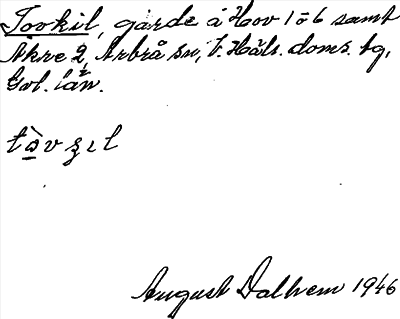 Tovkil, gärde å Hov 1 o 6 samt
Åkre 2, Arbrå sn, V. Häls. doms. bg,
Gvl. län.
tòvʂɩl
August Dalhem 1946